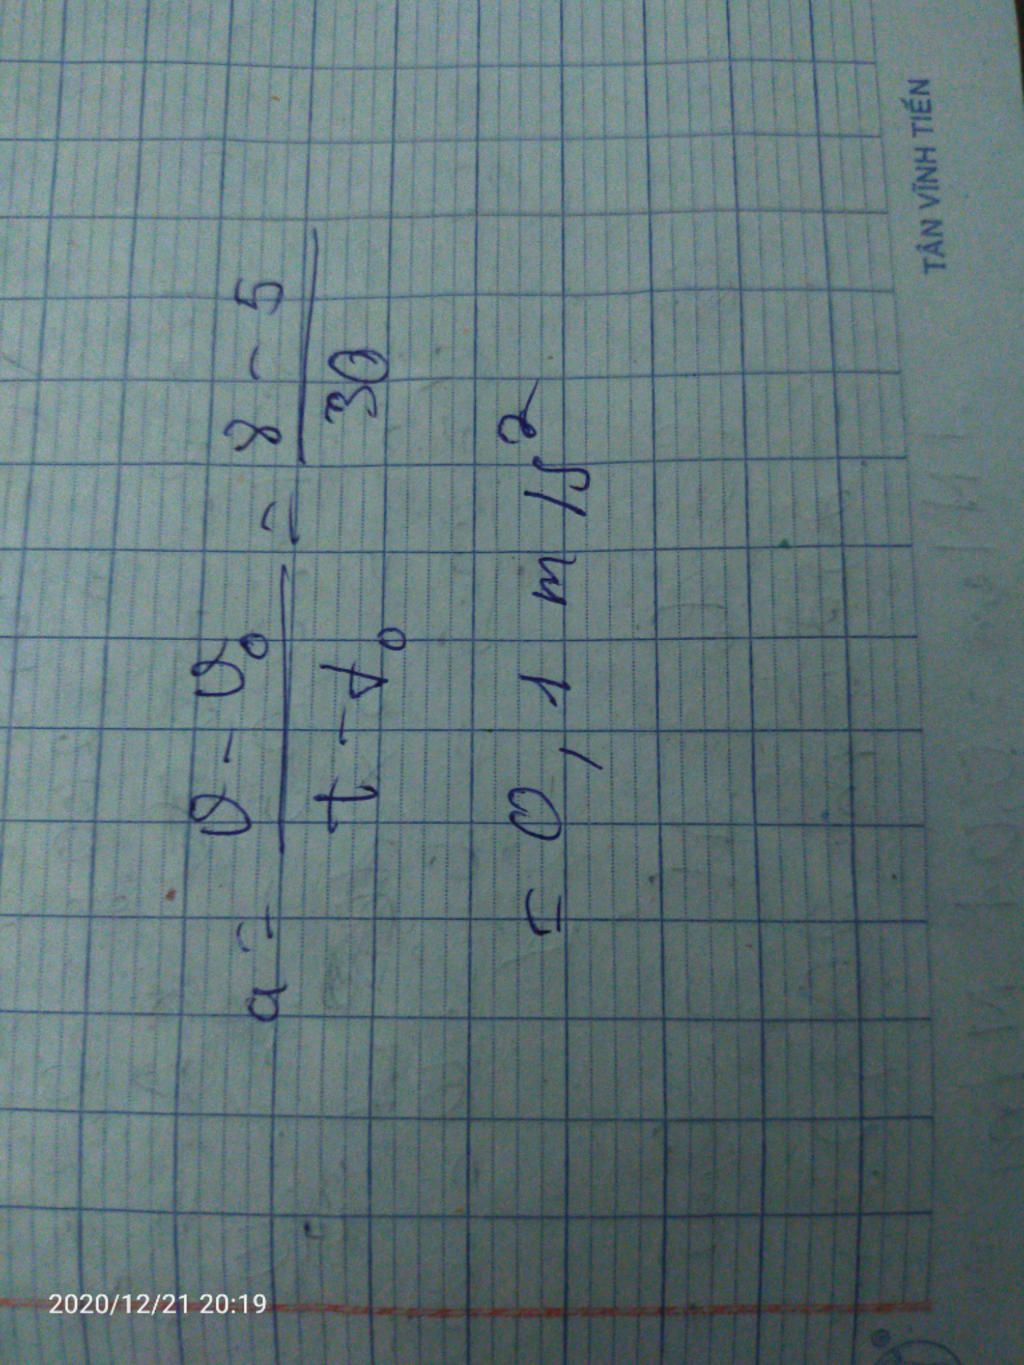 a = v - v₀ / t - t₀ = 8 - 5 / 30
= 0,1 m/s²
TÂN VĨNH TIẾN
2020/12/21 20:19